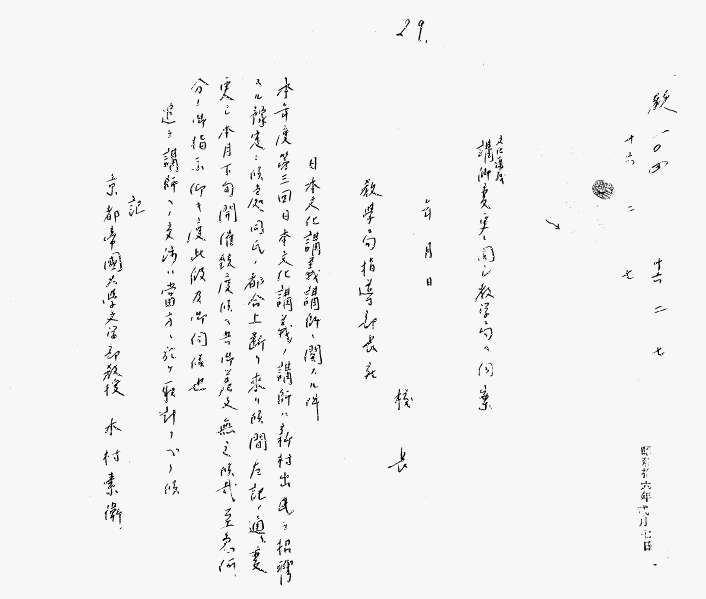 29.
十六 二 七
十六 二 七
昭和拾六年弐月七日
文化講義
講師変更ニ関シ教学局ヘ伺案
年 月 日
校 長
教学局指導部長宛
日本文化講義講師ニ関スル件
本年度第三回日本文化講義ノ講師ハ新村出氏ヲ招聘
スル予定ニ候処同氏ノ都合上断リ来リ候間左記ノ通変
更シ本月下旬開催致度候
分ノ御指示仰キ度此段及御伺候也
追テ講師ヘノ交渉ハ当方ニ於テ取計フヘク候
記
京都帝國大学文学部教授 木村素衛